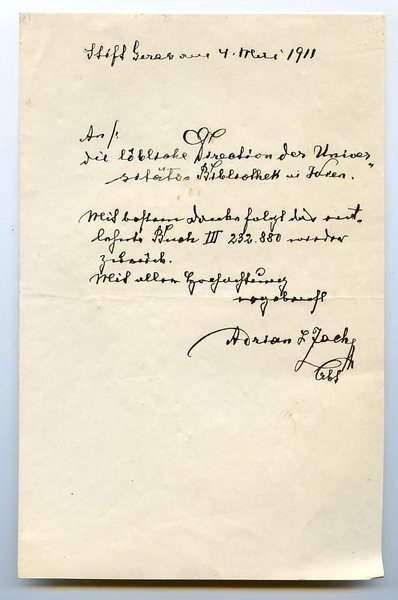 Stift Geras am 4. Mai 1911
An
die löbliche Direction der Univer„
sitäts Bibliothek in Wien.
Mit bestem Danke folgt das ent„
lehnte Buch III 232.880 wieder
zurück.
Mit aller Hochachtung
ergebenst
Adrian Zach
Abt